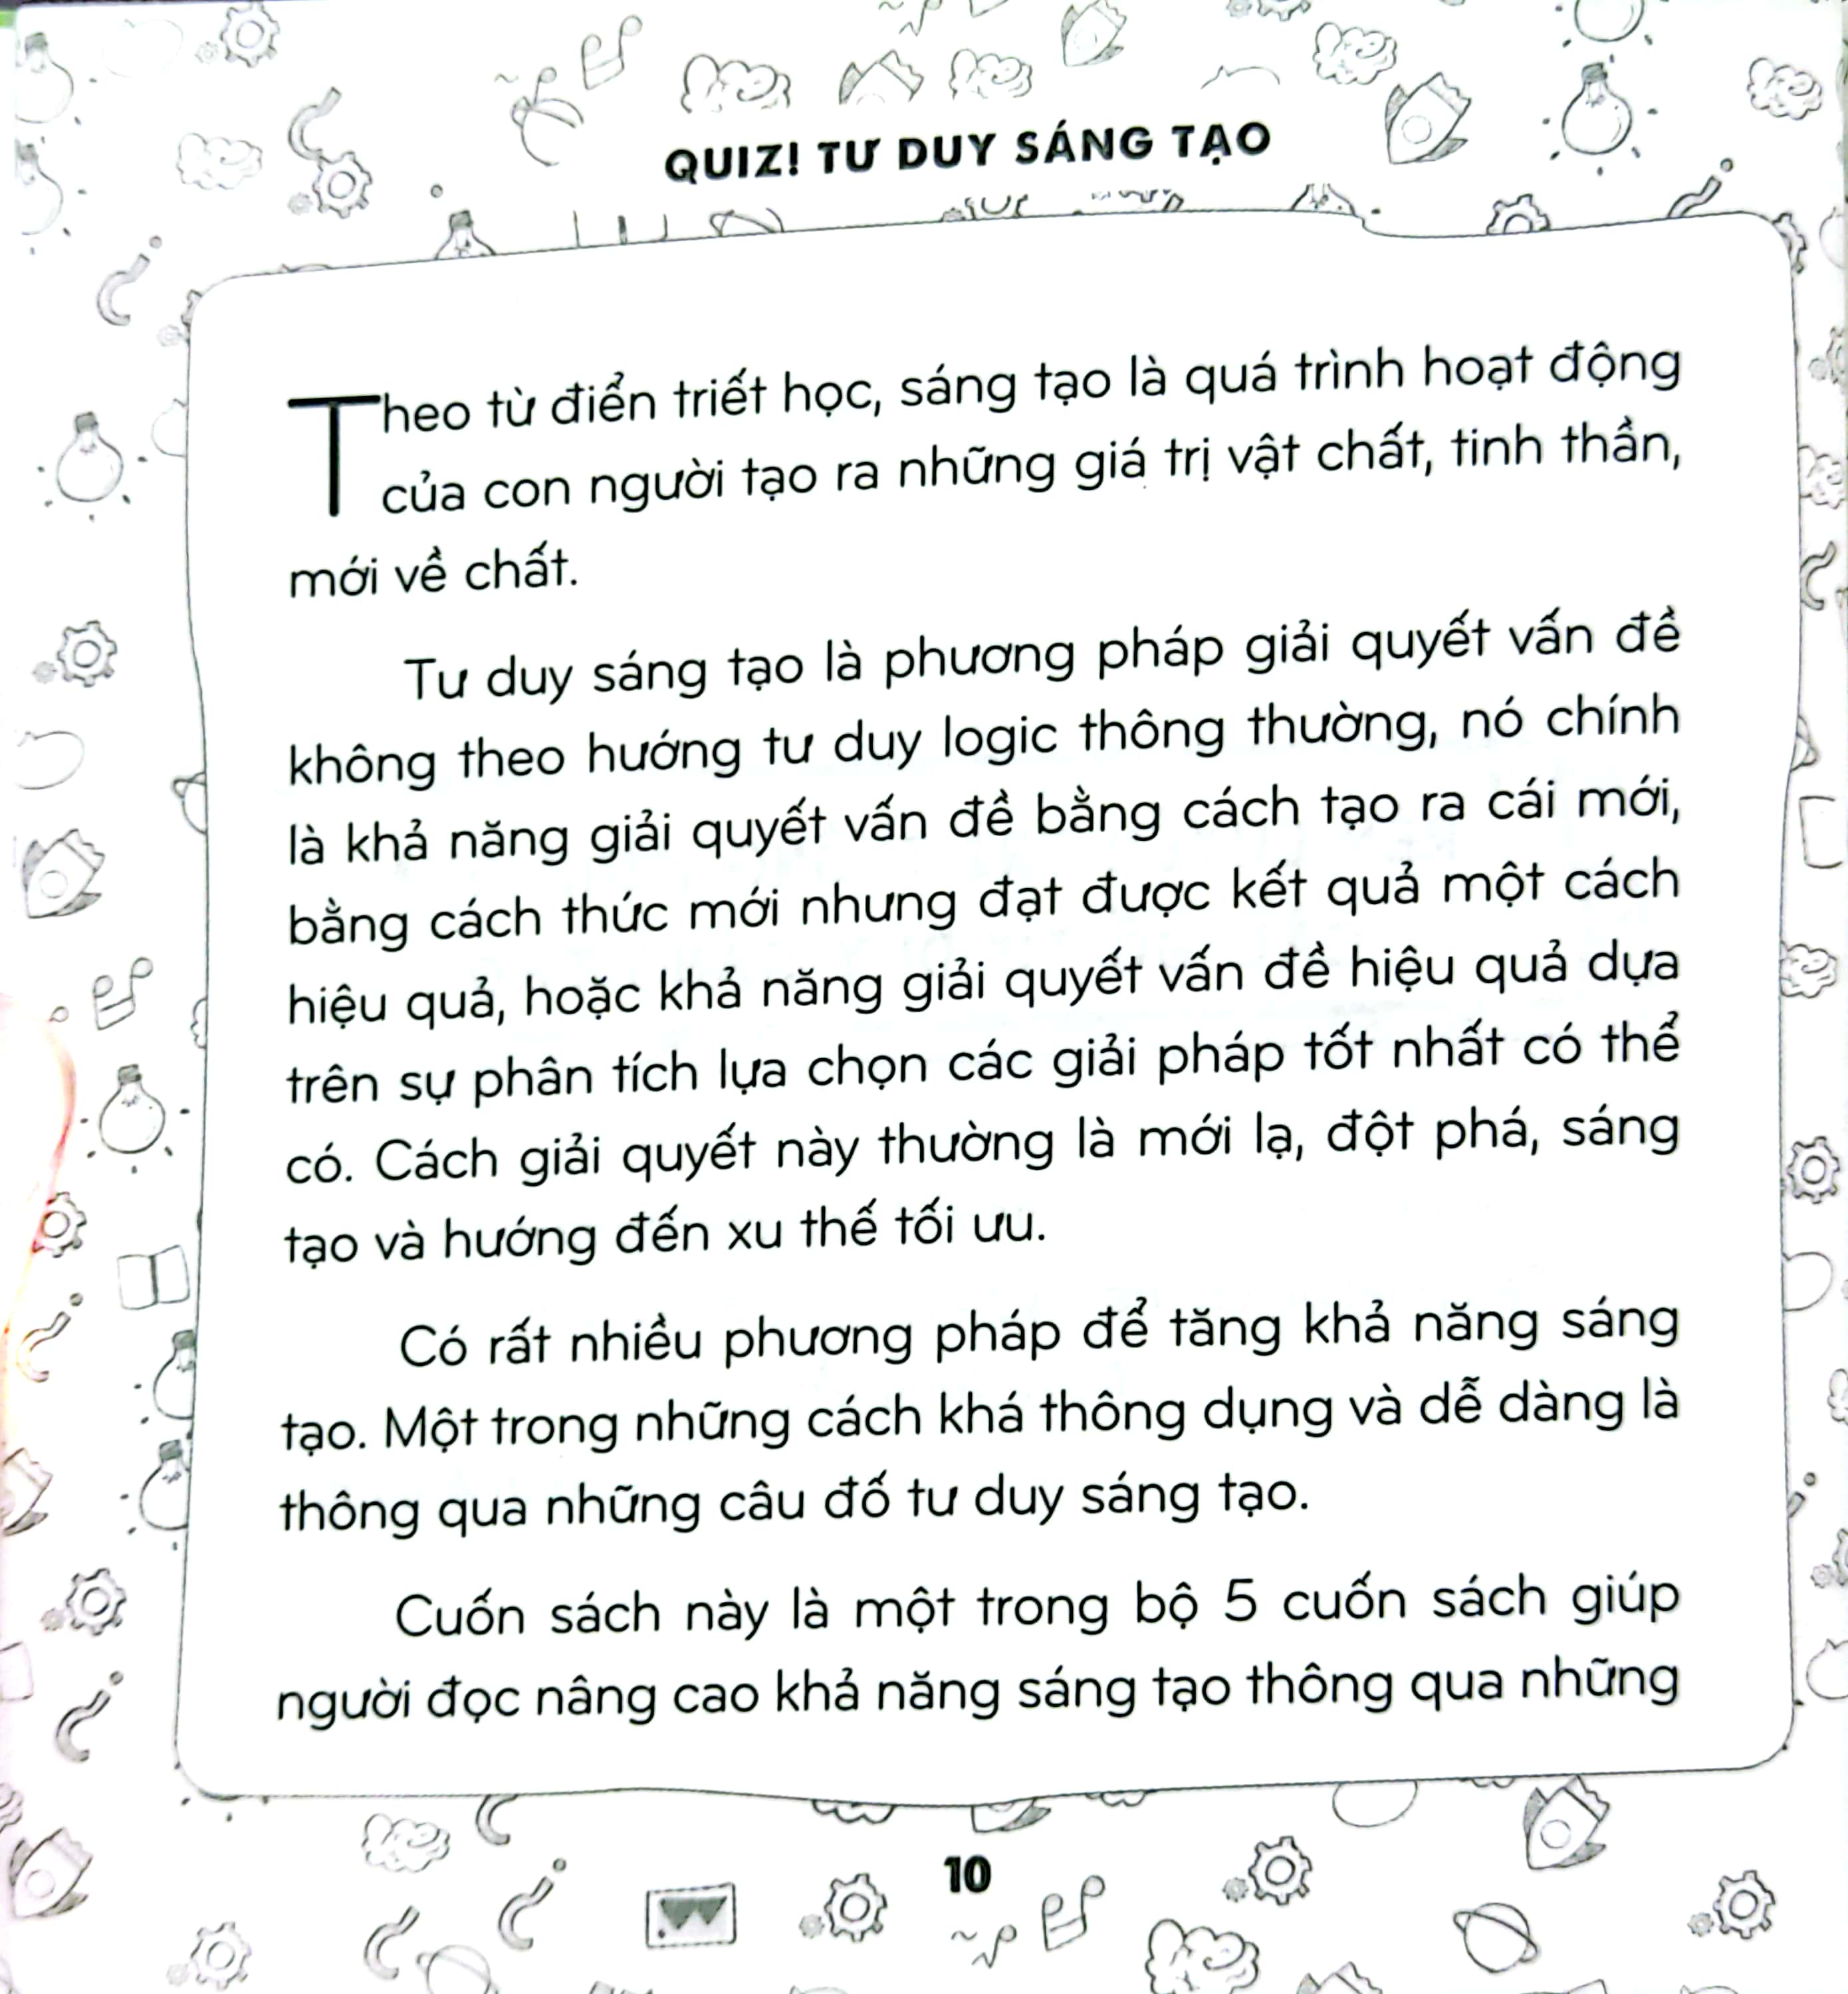 QUIZ! TƯ DUY SÁNG TẠO
Theo từ điển triết học, sáng tạo là quá trình hoạt động
của con người tạo ra những giá trị vật chất, tinh thần,
mới về chất.
Tư duy sáng tạo là phương pháp giải quyết vấn đề
không theo hướng tư duy logic thông thường, nó chính
là khả năng giải quyết vấn đề bằng cách tạo ra cái mới,
bằng cách thức mới nhưng đạt được kết quả một cách
hiệu quả, hoặc khả năng giải quyết vấn đề hiệu quả dựa
trên sự phân tích lựa chọn các giải pháp tốt nhất có thể
có. Cách giải quyết này thường là mới lạ, đột phá, sáng
tạo và hướng đến xu thế tối ưu.
Có rất nhiều phương pháp để tăng khả năng sáng
tạo. Một trong những cách khá thông dụng và dễ dàng là
thông qua những câu đố tư duy sáng tạo.
Cuốn sách này là một trong bộ 5 cuốn sách giúp
người đọc nâng cao khả năng sáng tạo thông qua những
10